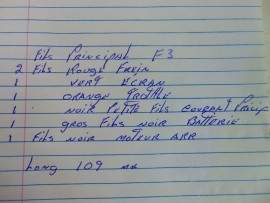 Fils Principal F3
2 Fils Rouge Frein
1 Vert Ecran
1 Orange
1 Noir Petite Fils Courant Princip
1 Gros Fils Noir Batterie
1 Fils Noir Moteur Arr
Long 109